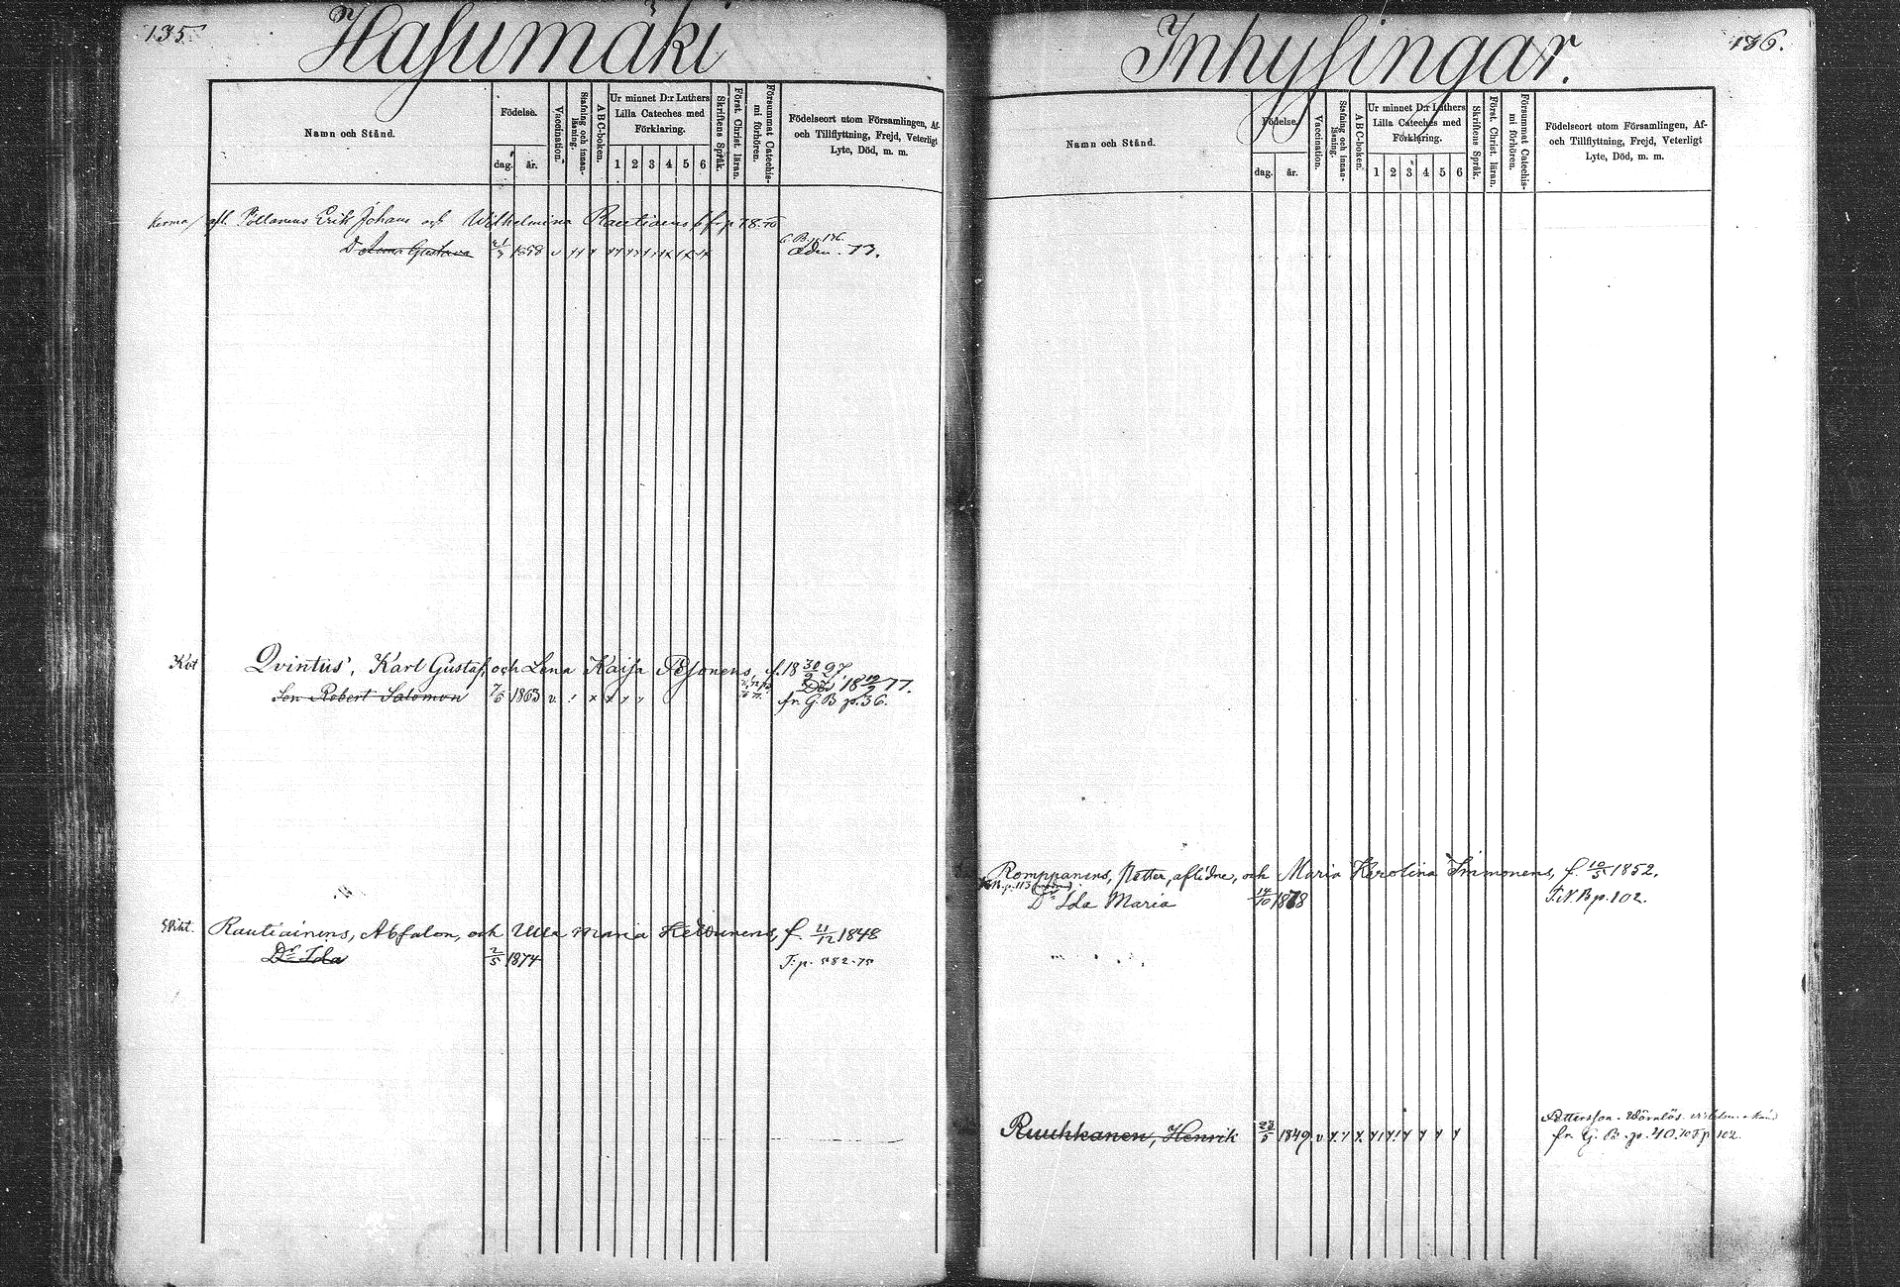 135.
Hasumäki
Namn och Stånd.
Födelse.
dag.
år.
Vaccination.
Stafning och innan-
läsning.
ABC-boken.
Ur minnet D:r Luthers
Lilla Cateches med
Förklaring.
1 2 3 4 5 6
Skriftens Språk.
Först. Christ. läran.
Försummat Catechis-
mi förhören.
Födelseort utom Församlingen, Af-
och Tillflyttning, Frejd, Veterligt
Lyte, Död, m. m.
Kerma afl. Pöllänens Erik Johan och Wilhelmina Rautiaens
D Gustava 1858 v 73.
Kot Qvintus', Karl Gustaf, och Lena Kaisa Pesonens, f. 18 30/9 27
Död 18 12/7 77.
Son Robert Salomon 7/6 1863 v. fr. G.B p. 36.
Rautiainens, Absalon, och Ulla Maria Heldunens, f. 11/12 1848
Dr Ida 2/5 1874 T. p. 582.75
186.
Inhysingar.
Namn och Stånd.
Födelse.
dag.
år.
Vaccination.
Stafning och innan-
läsning.
ABC-boken.
Ur minnet D:r Luthers
Lilla Cateches med
Förklaring.
1 2 3 4 5 6
Skriftens Språk.
Först. Christ. läran.
Försummat Catechis-
mi förhören.
Födelseort utom Församlingen, Af-
och Tillflyttning, Frejd, Veterligt
Lyte, Död, m. m.
Romppanens, Petter, aflidne, och Maria Karolina Immonens, f. 10/5 1852.
p. 113
Dr Ida Maria 14/10 1878 T.N.B p. 102.
Pettersson
Ruuhkanen, Henrik 23/5 1849 v fr. G. B. p. 40. 102.